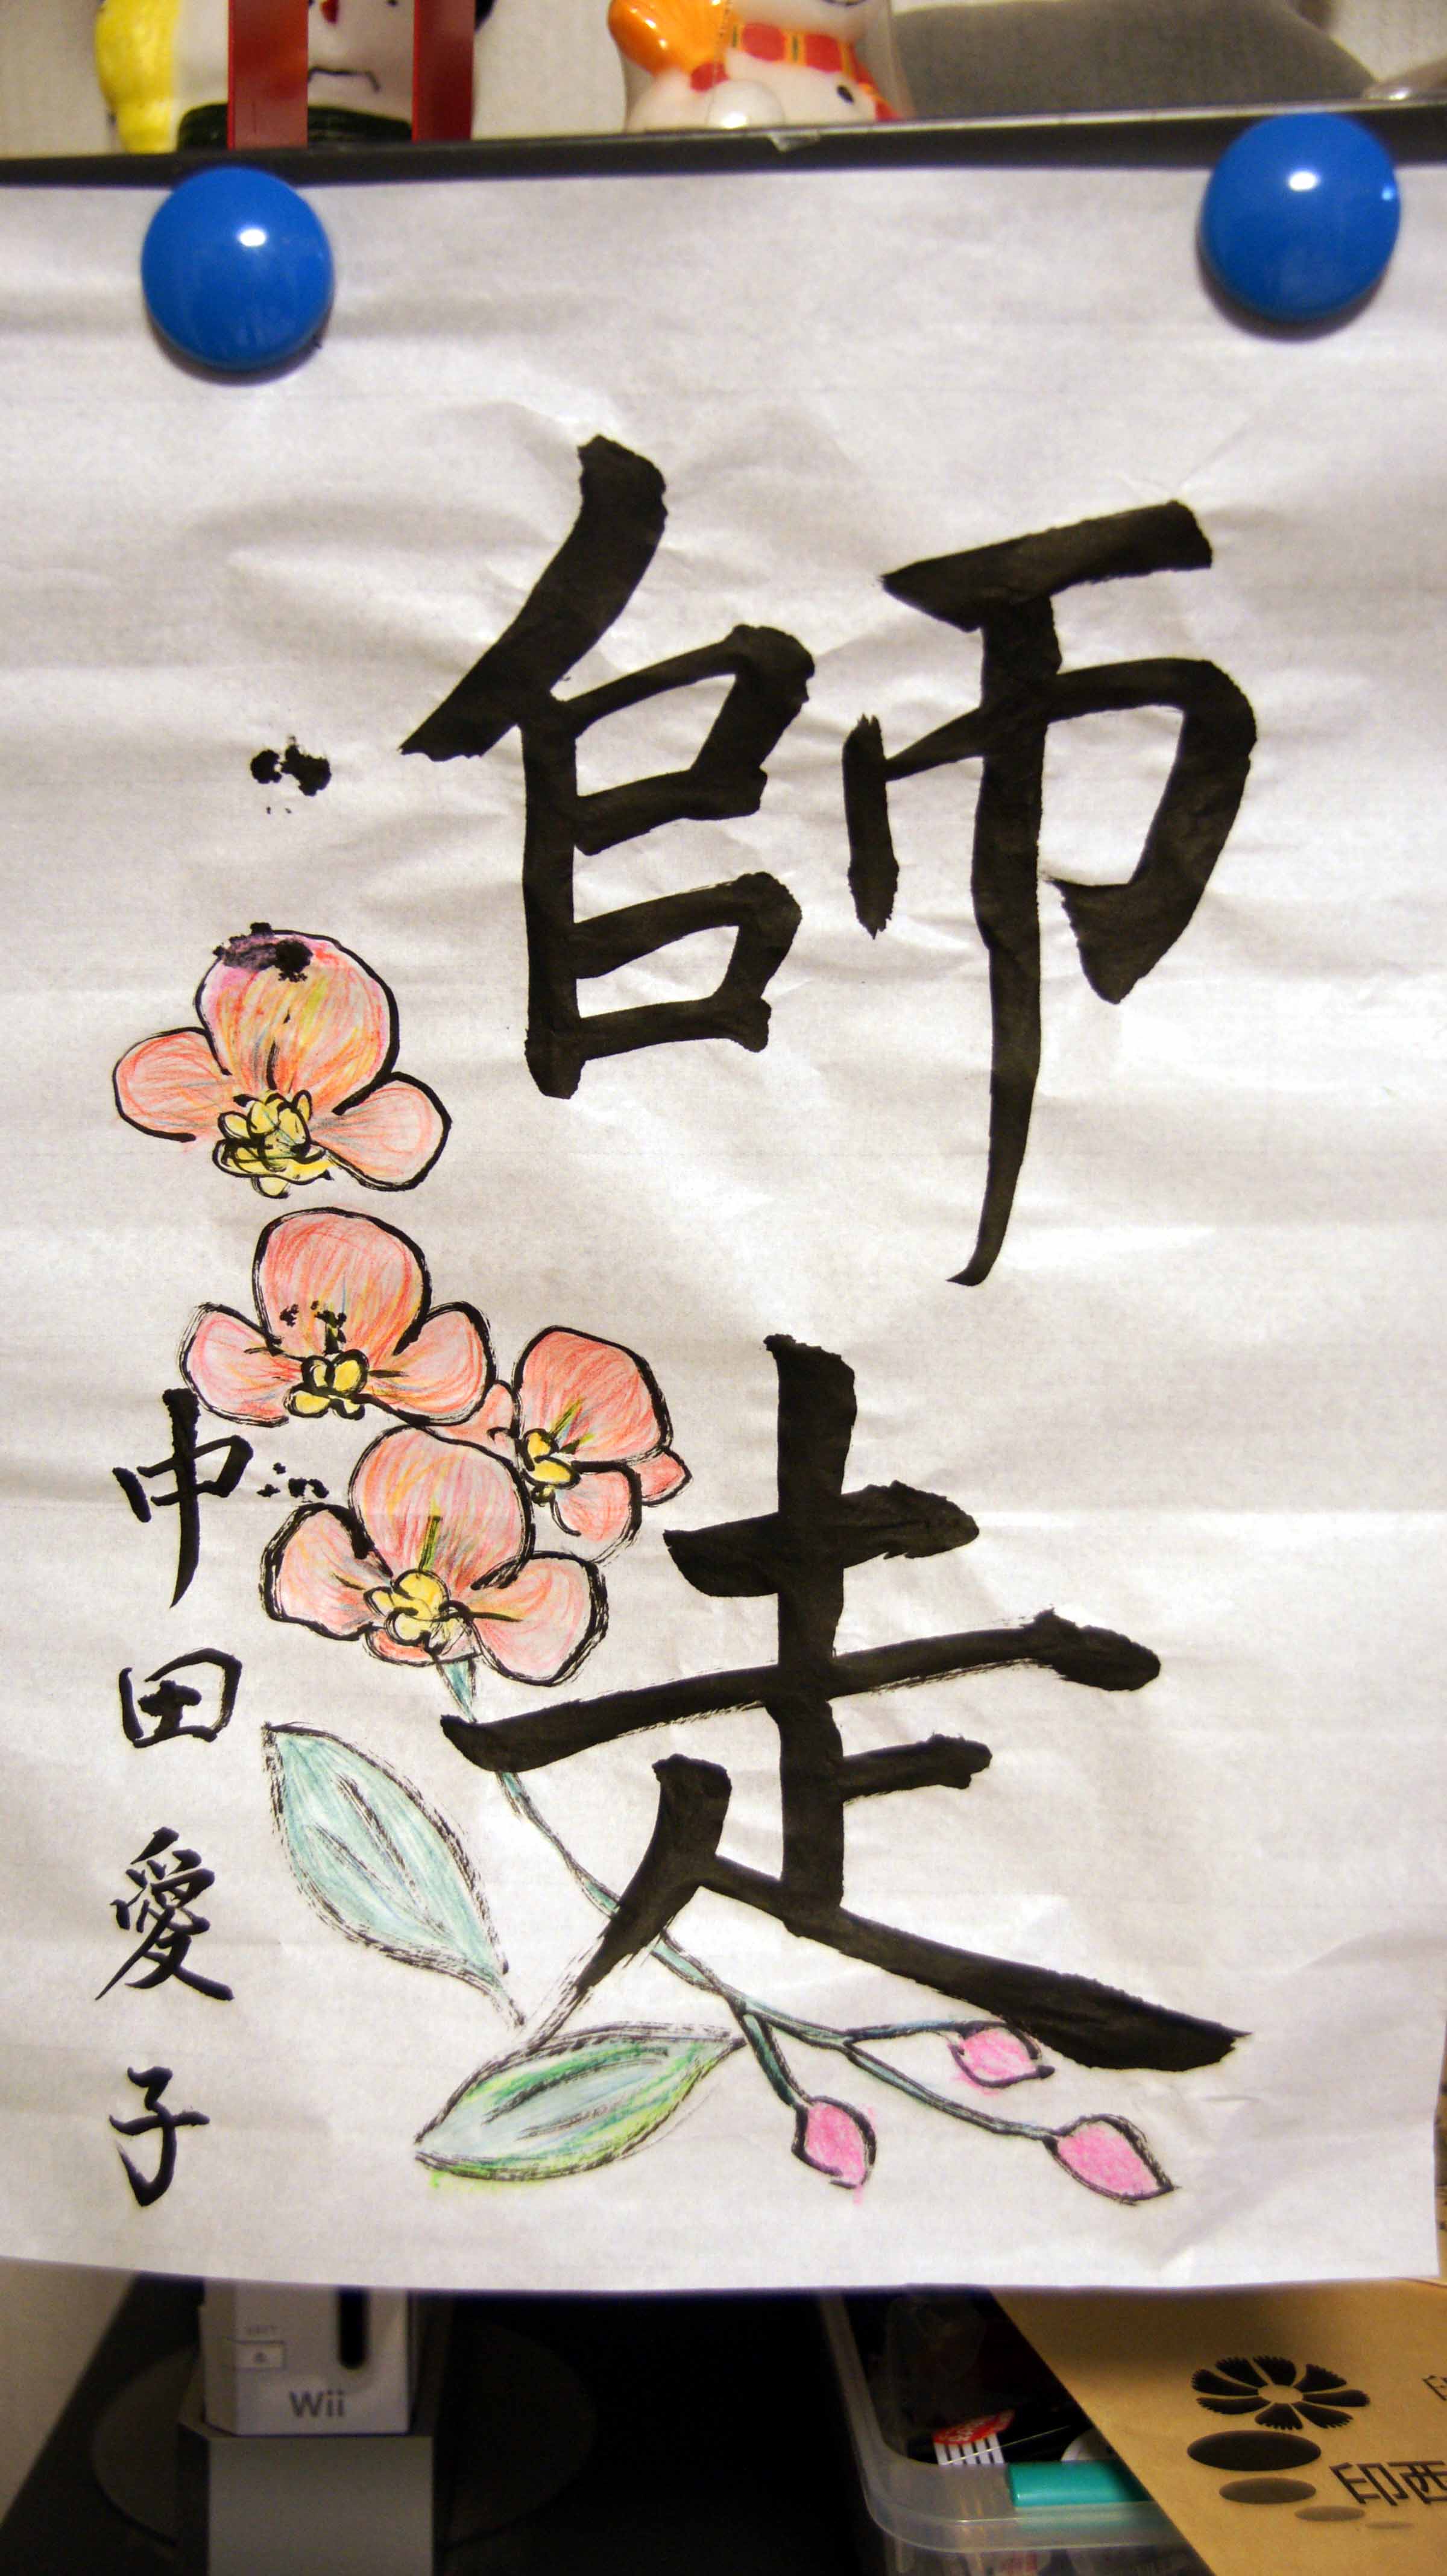 師走
中田愛子
Wii
印西